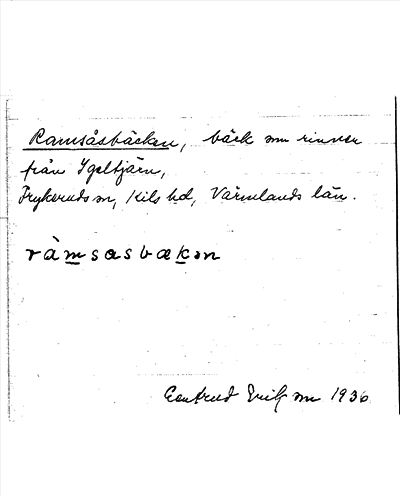 Ramsåsbäcken, bäck som rinner
från Igeltjärn,
Frykeruds sn, Kils hd, Värmlands län.
ràmsasbækən
Gertrud 1936